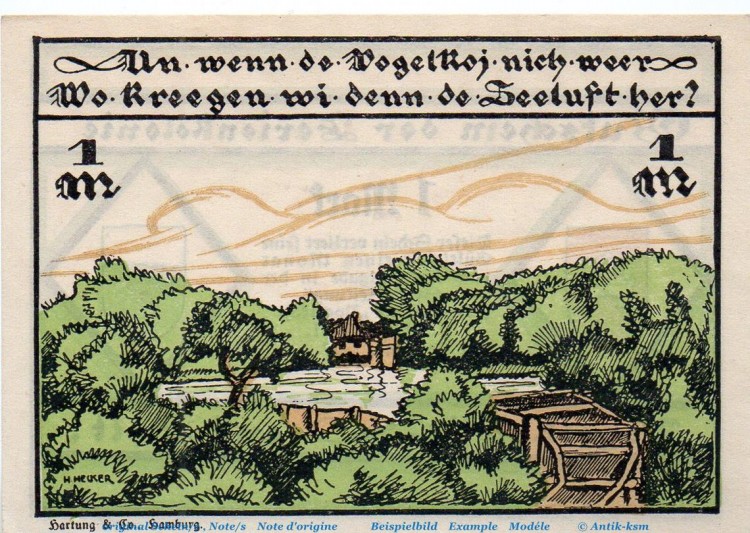 Un·wenn·de·Vogelkoj·nich·weer
Wo·kreegen·wi·denn·de·Seeluft·her?
1
M
1
M
H HEIKER
Hartung & Co., Hamburg.
Note/s Note d'origine Beispielbild Example Modéle © Antik-ksm